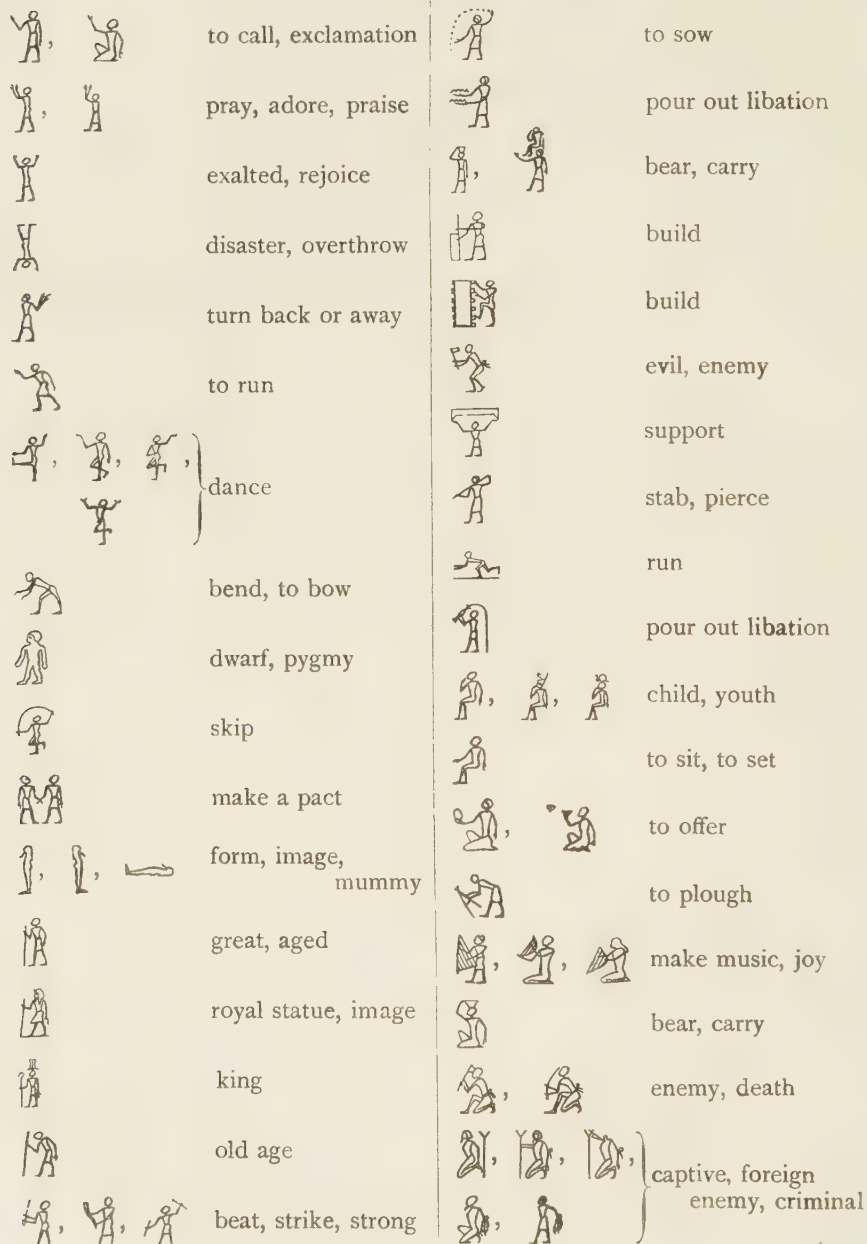 to call, exclamation
pray, adore, praise
exalted, rejoice
disaster, overthrow
turn back or away
to run
dance
bend, to bow
dwarf, pygmy
skip
make a pact
form, image,
mummy
great, aged
royal statue, image
king
old age
beat, strike, strong
to sow
pour out libation
bear, carry
build
build
evil, enemy
support
stab, pierce
run
pour out libation
child, youth
to sit, to set
to offer
to plough
make music, joy
bear, carry
enemy, death
captive, foreign
enemy, criminal